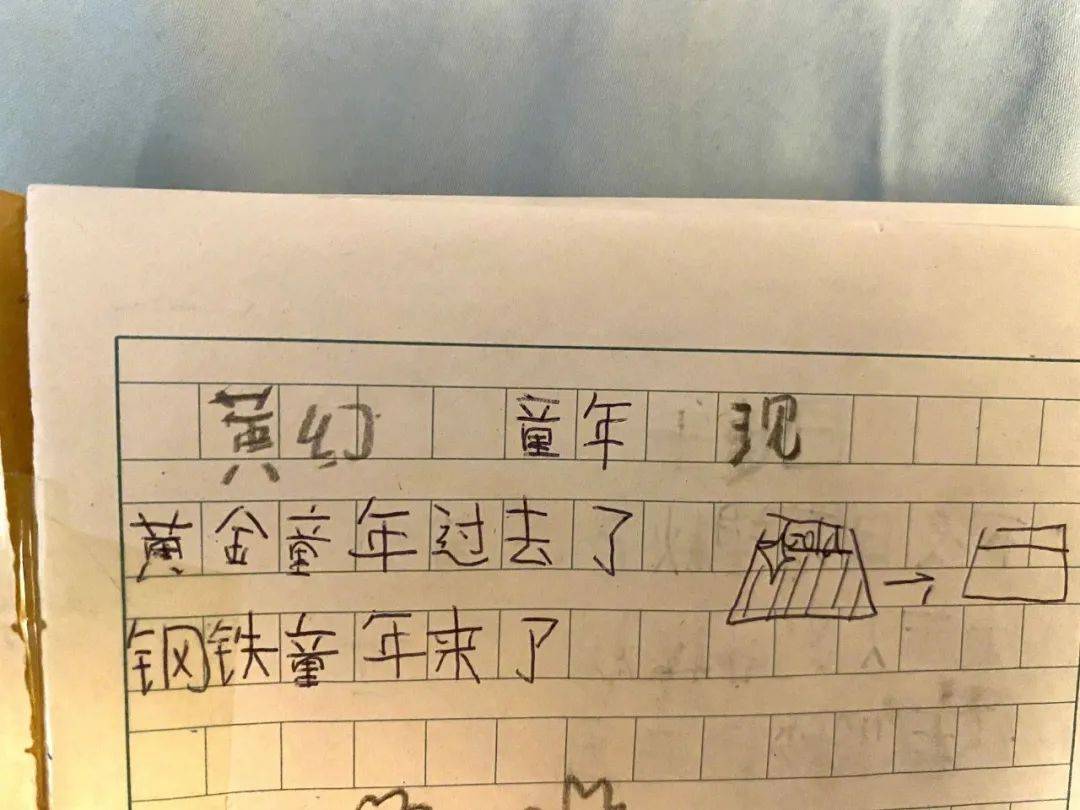 黄幻 童年 现
黄金童年过去了
钢铁童年来了